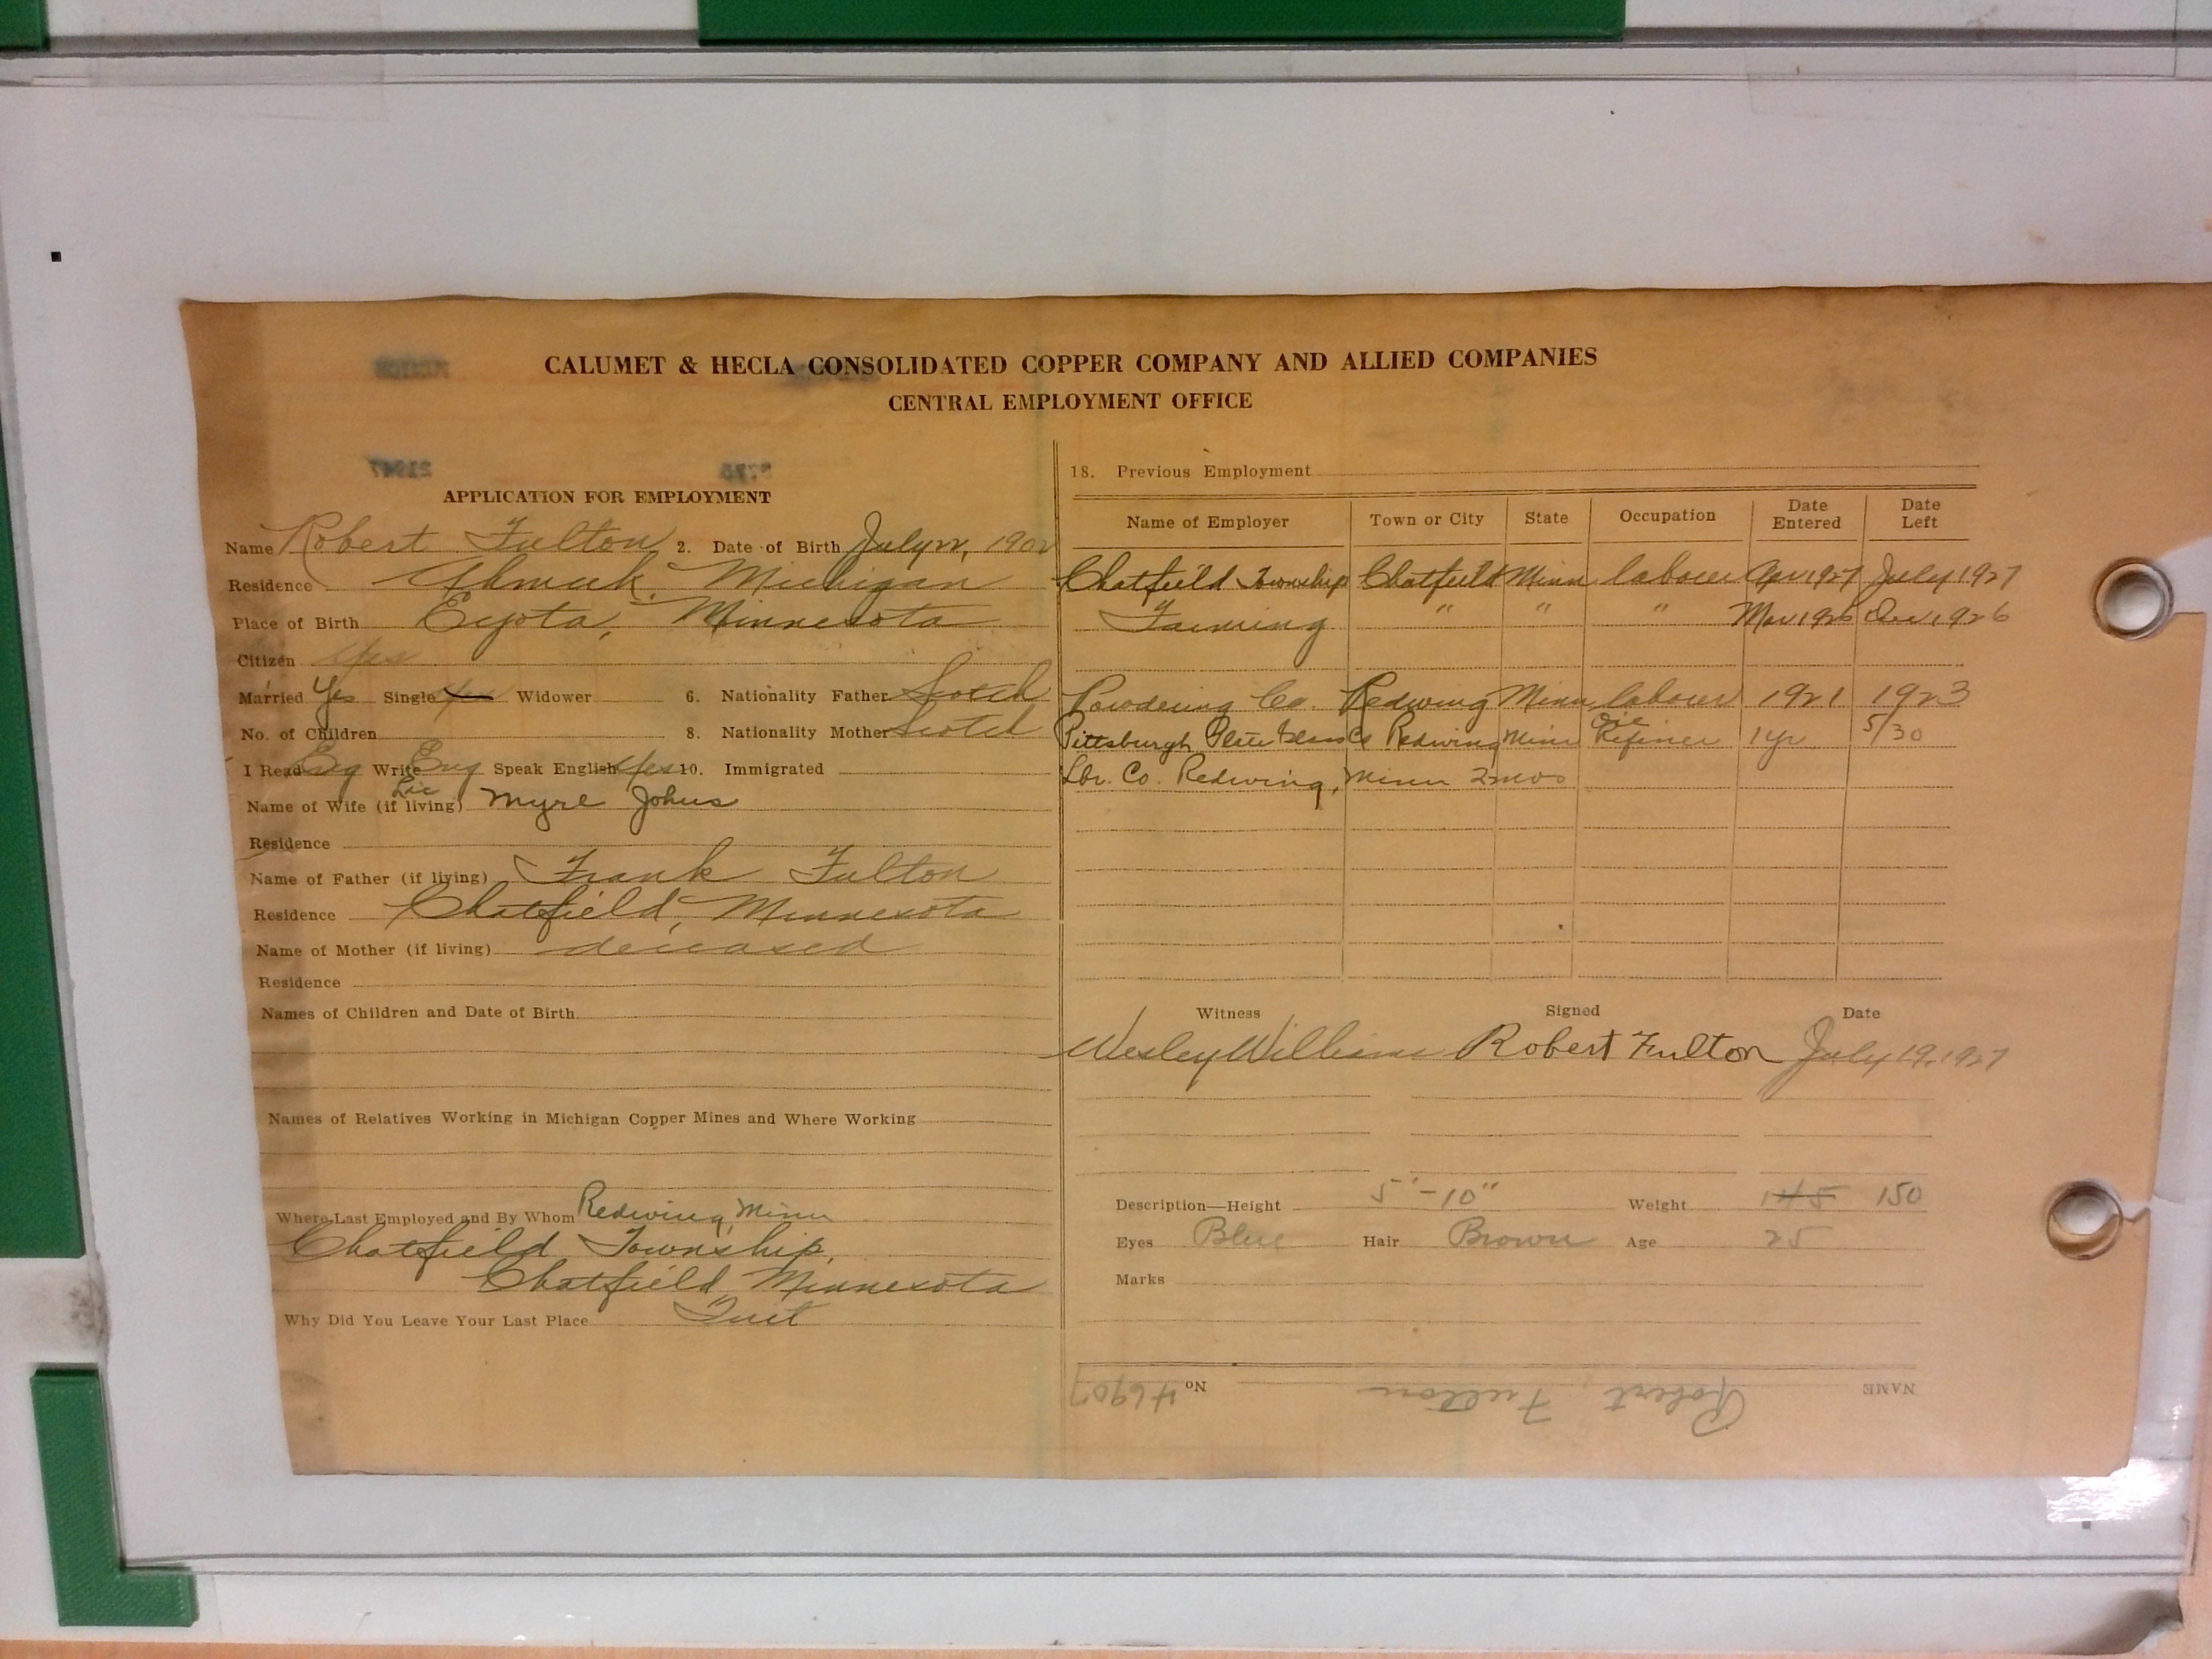 CALUMET & HECLA CONSOLIDATED COPPER COMPANY AND ALLIED COMPANIES
CENTRAL EMPLOYMENT OFFICE
21947
APPLICATION FOR EMPLOYMENT
Name Robert Fulton 2. Date of Birth July 22, 1902
Residence Ahmeek, Michigan
Place of Birth Eyota, Minnesota
Citizen Yes
Married Yes Single Yes Widower 6. Nationality Father Scotch
No. of Children 8. Nationality Mother Scotch
I Read Eng Write Eng Speak English Yes 10. Immigrated
Name of Wife (if living) Myrl Johns
Residence
Name of Father (if living) Frank Fulton
Residence Chatfield, Minnesota
Name of Mother (if living) deceased
Residence
Names of Children and Date of Birth
Names of Relatives Working in Michigan Copper Mines and Where Working
Where Last Employed and By Whom Redwing, Minn
Chatfield Township,
Chatfield, Minnesota
Why Did You Leave Your Last Place Quit
18. Previous Employment
Name of Employer Town or City State Occupation Date Entered Date Left
Chatfield Township Chatfield Minn laborer Apr 1927 July 1927
Farming " " " Mar 1926 Dec 1926
Co. Redwing Minn laborer 1921 1923
Pittsburgh Plate Glass Co Redwing Minn Oil Refiner 1 yr 5/30
Lbr. Co. Redwing, Minn 2 mos
Witness Signed Date
Wesley Williams Robert Fulton July 19, 1927
Description—Height 5'-10" Weight 145 150
Eyes Blue Hair Brown Age 25
Marks
NAME Robert Fulton No 46907